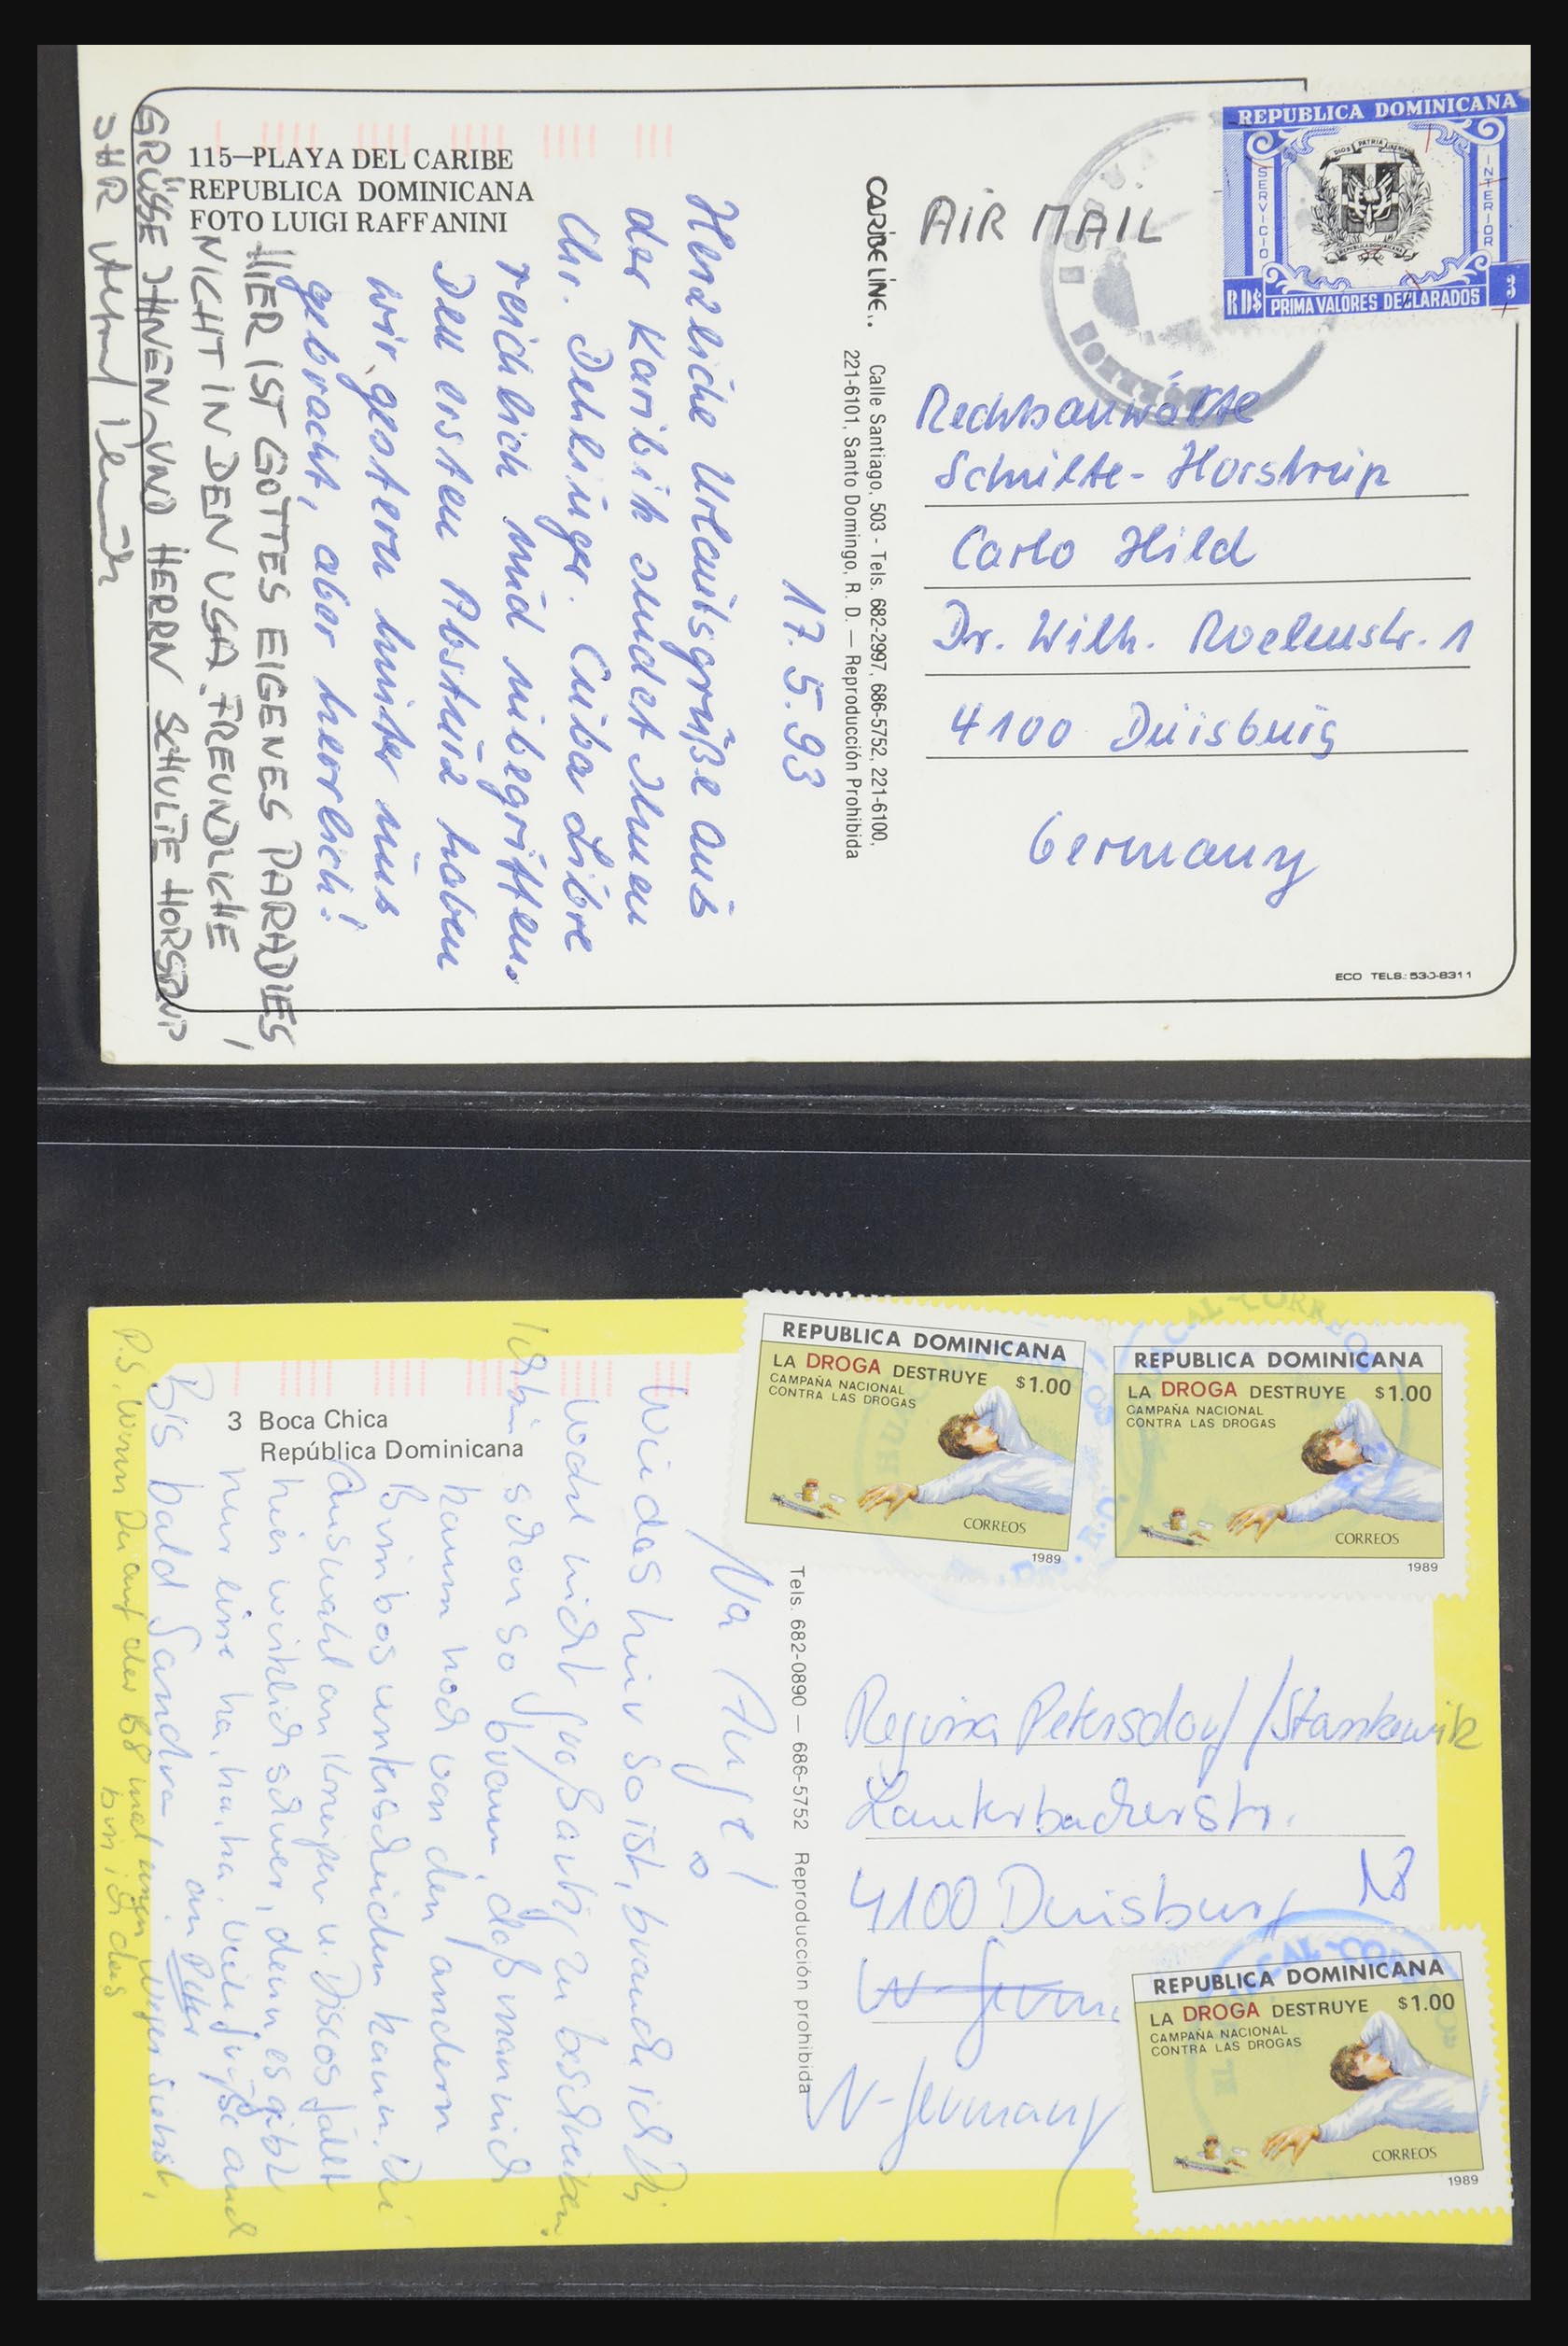 115—PLAYA DEL CARIBE
REPUBLICA DOMINICANA
FOTO LUIGI RAFFANINI
17.5.93
Herzliche Urlaubsgrüße aus
der Karibik sendet Ihnen
Ihr. Dehlinger. Cuba Libre
reichlich und inbegriffen.
Den ersten Absturz haben
wir gestern hinter uns
gebracht, aber herrlich!
HIER IST GOTTES EIGENES PARADIES,
NICHT IN DEN USA. FREUNDLICHE
GRÜSSE IHNEN UND HERRN SCHULTE HORSTRUP
IHR
CARIBE LINE..
Calle Santiago, 503 - Tels. 682-2997, 686-5752, 221-6100,
221-6101, Santo Domingo, R. D. — Reproducción Prohibida
AIR MAIL
REPUBLICA DOMINICANA
DIOS PATRIA LIBERTAD
REPUBLICA DOMINICANA
SERVICIO
INTERIOR
RD$ PRIMA VALORES DECLARADOS 3
Rechtsanwälte
Schulte-Horstrup
Carlo Hild
Dr. Wilh. Roelenstr. 1
4100 Duisburg
Germany
ECO TELS.: 530-8311
3 Boca Chica
República Dominicana
Na Auge!
Wie das hier so ist, brauche ich Dir
wohl nicht großartig zu beschreiben.
Ich bin schon so braun, daß man mich
kaum noch von den andern
Bimbos unterscheiden kann. Die
Auswahl an Kneipen u. Discos fällt
hier wirklich schwer, denn es gibt
nur eine ha, ha, ha. Viele Grüße auch
an Peter
Bis bald Sandra
P.S. Wenn Du auf der B8 mal einen Neger siehst,
bin ich das
Tels. 682-0890 — 686-5752 Reproducción prohibida
REPUBLICA DOMINICANA
LA DROGA DESTRUYE $1.00
CAMPAÑA NACIONAL
CONTRA LAS DROGAS
CORREOS
1989
REPUBLICA DOMINICANA
LA DROGA DESTRUYE $1.00
CAMPAÑA NACIONAL
CONTRA LAS DROGAS
CORREOS
1989
Regina Petersdorf/Stankewitz
Lauterbacherstr.
4100 Duisburg 18
W-Germ
W-Germany
REPUBLICA DOMINICANA
LA DROGA DESTRUYE $1.00
CAMPAÑA NACIONAL
CONTRA LAS DROGAS
CORREOS
1989